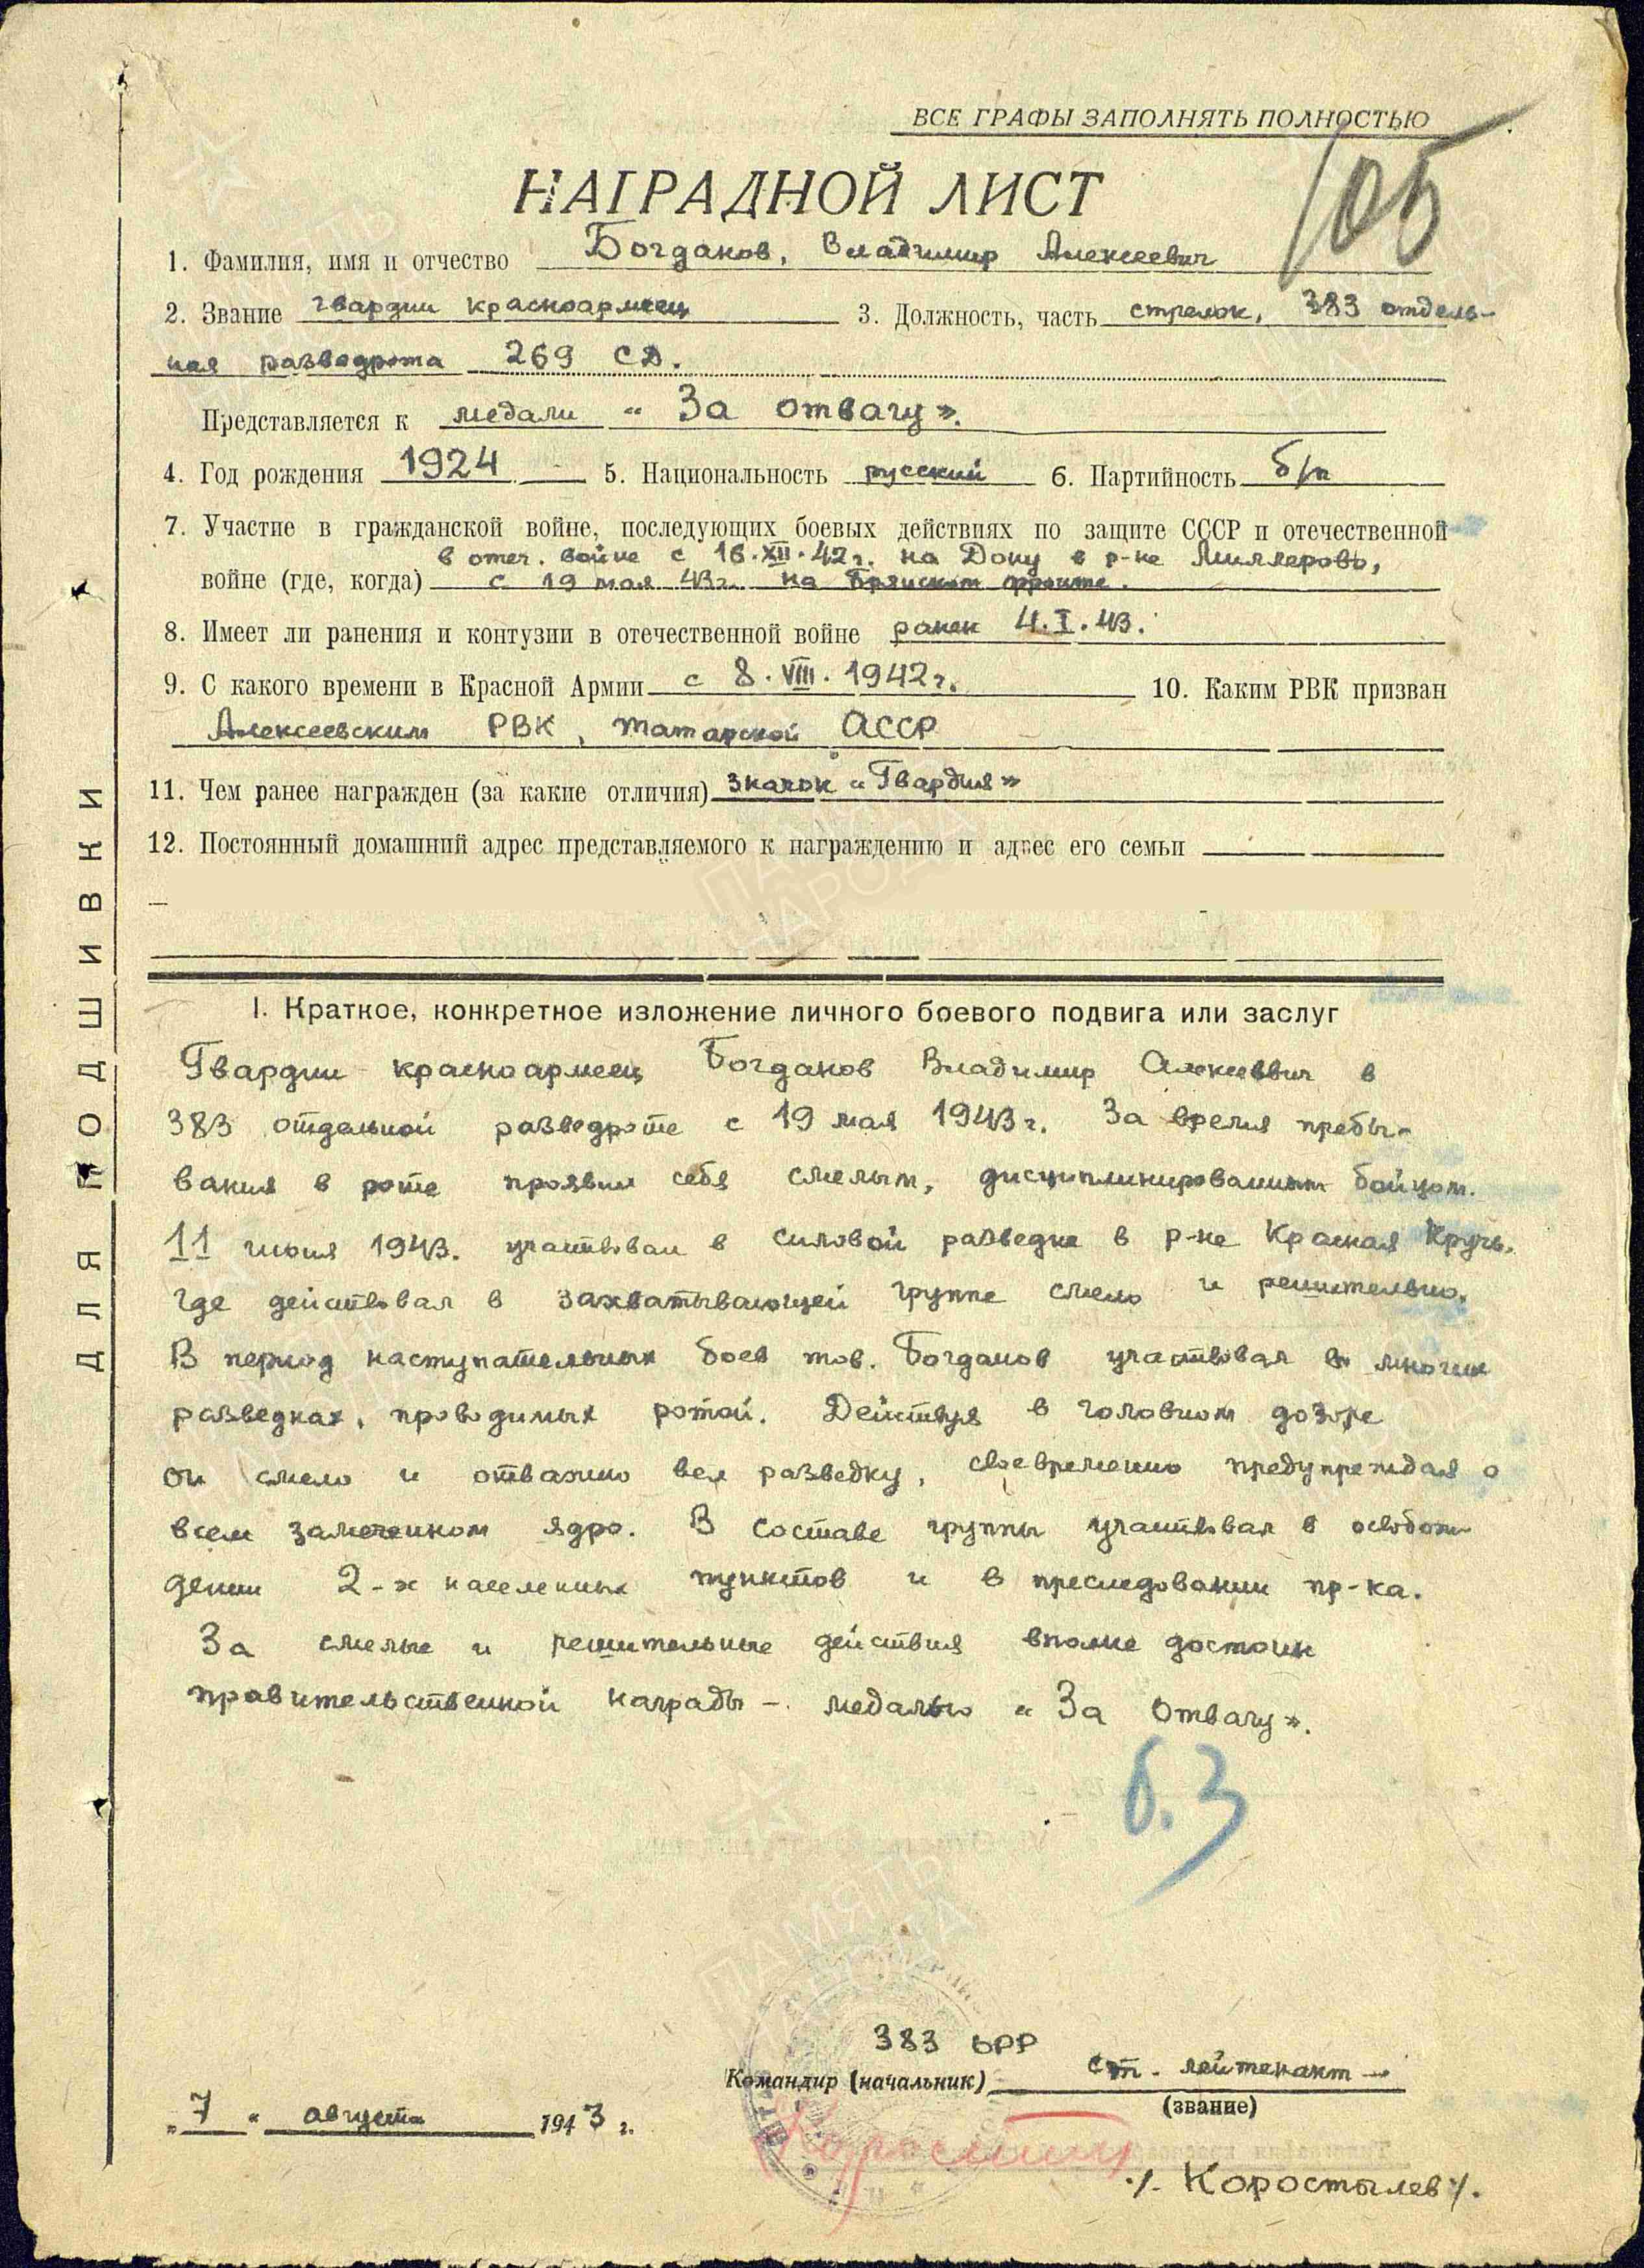 ВСЕ ГРАФЫ ЗАПОЛНЯТЬ ПОЛНОСТЬЮ
105
НАГРАДНОЙ ЛИСТ
1. Фамилия, имя и отчество Богданов, Владимир Алексеевич
2. Звание гвардии красноармеец 3. Должность, часть стрелок, 383 отдель-
ная разведрота 269 СД.
Представляется к медали "За отвагу".
4. Год рождения 1924 5. Национальность русский 6. Партийность б/п
7. Участие в гражданской войне, последующих боевых действиях по защите СССР и отечественной
в отеч. войне с 16.XII.42г. на Дону в р-не Миллерово,
войне (где, когда) с 19 мая 43г. на Брянском фронте.
8. Имеет ли ранения и контузии в отечественной войне ранен 4.I.43.
9. С какого времени в Красной Армии с 8.VIII.1942г. 10. Каким РВК призван
Алексеевским РВК, Татарской АССР
11. Чем ранее награжден (за какие отличия) значок "Гвардия"
12. Постоянный домашний адрес представляемого к награждению и адрес его семьи
ДЛЯ ПОДШИВКИ
I. Краткое, конкретное изложение личного боевого подвига или заслуг
Гвардии красноармеец Богданов Владимир Алексеевич в
383 отдельной разведроте с 19 мая 1943г. За время пребы-
вания в роте проявил себя смелым, дисциплинированным бойцом.
11 июня 1943. участвовал в силовой разведке в р-не Красная Кручь,
где действовал в захватывающей группе смело и решительно.
В период наступательных боев тов. Богданов участвовал в многих
разведках, проводимых ротой. Действуя в головном дозоре
он смело и отважно вел разведку, своевременно предупреждая о
всем замеченном ядро. В составе группы участвовал в освобож-
дении 2-х населенных пунктов и в преследовании пр-ка.
За смелые и решительные действия вполне достоин
правительственной награды - медалью "За Отвагу".
б.З
383 ОРР
Командир (начальник) ст. лейтенант
(звание)
"7" августа 1943 г.
/. Коростылев /.
ПАМЯТЬ
НАРОДА